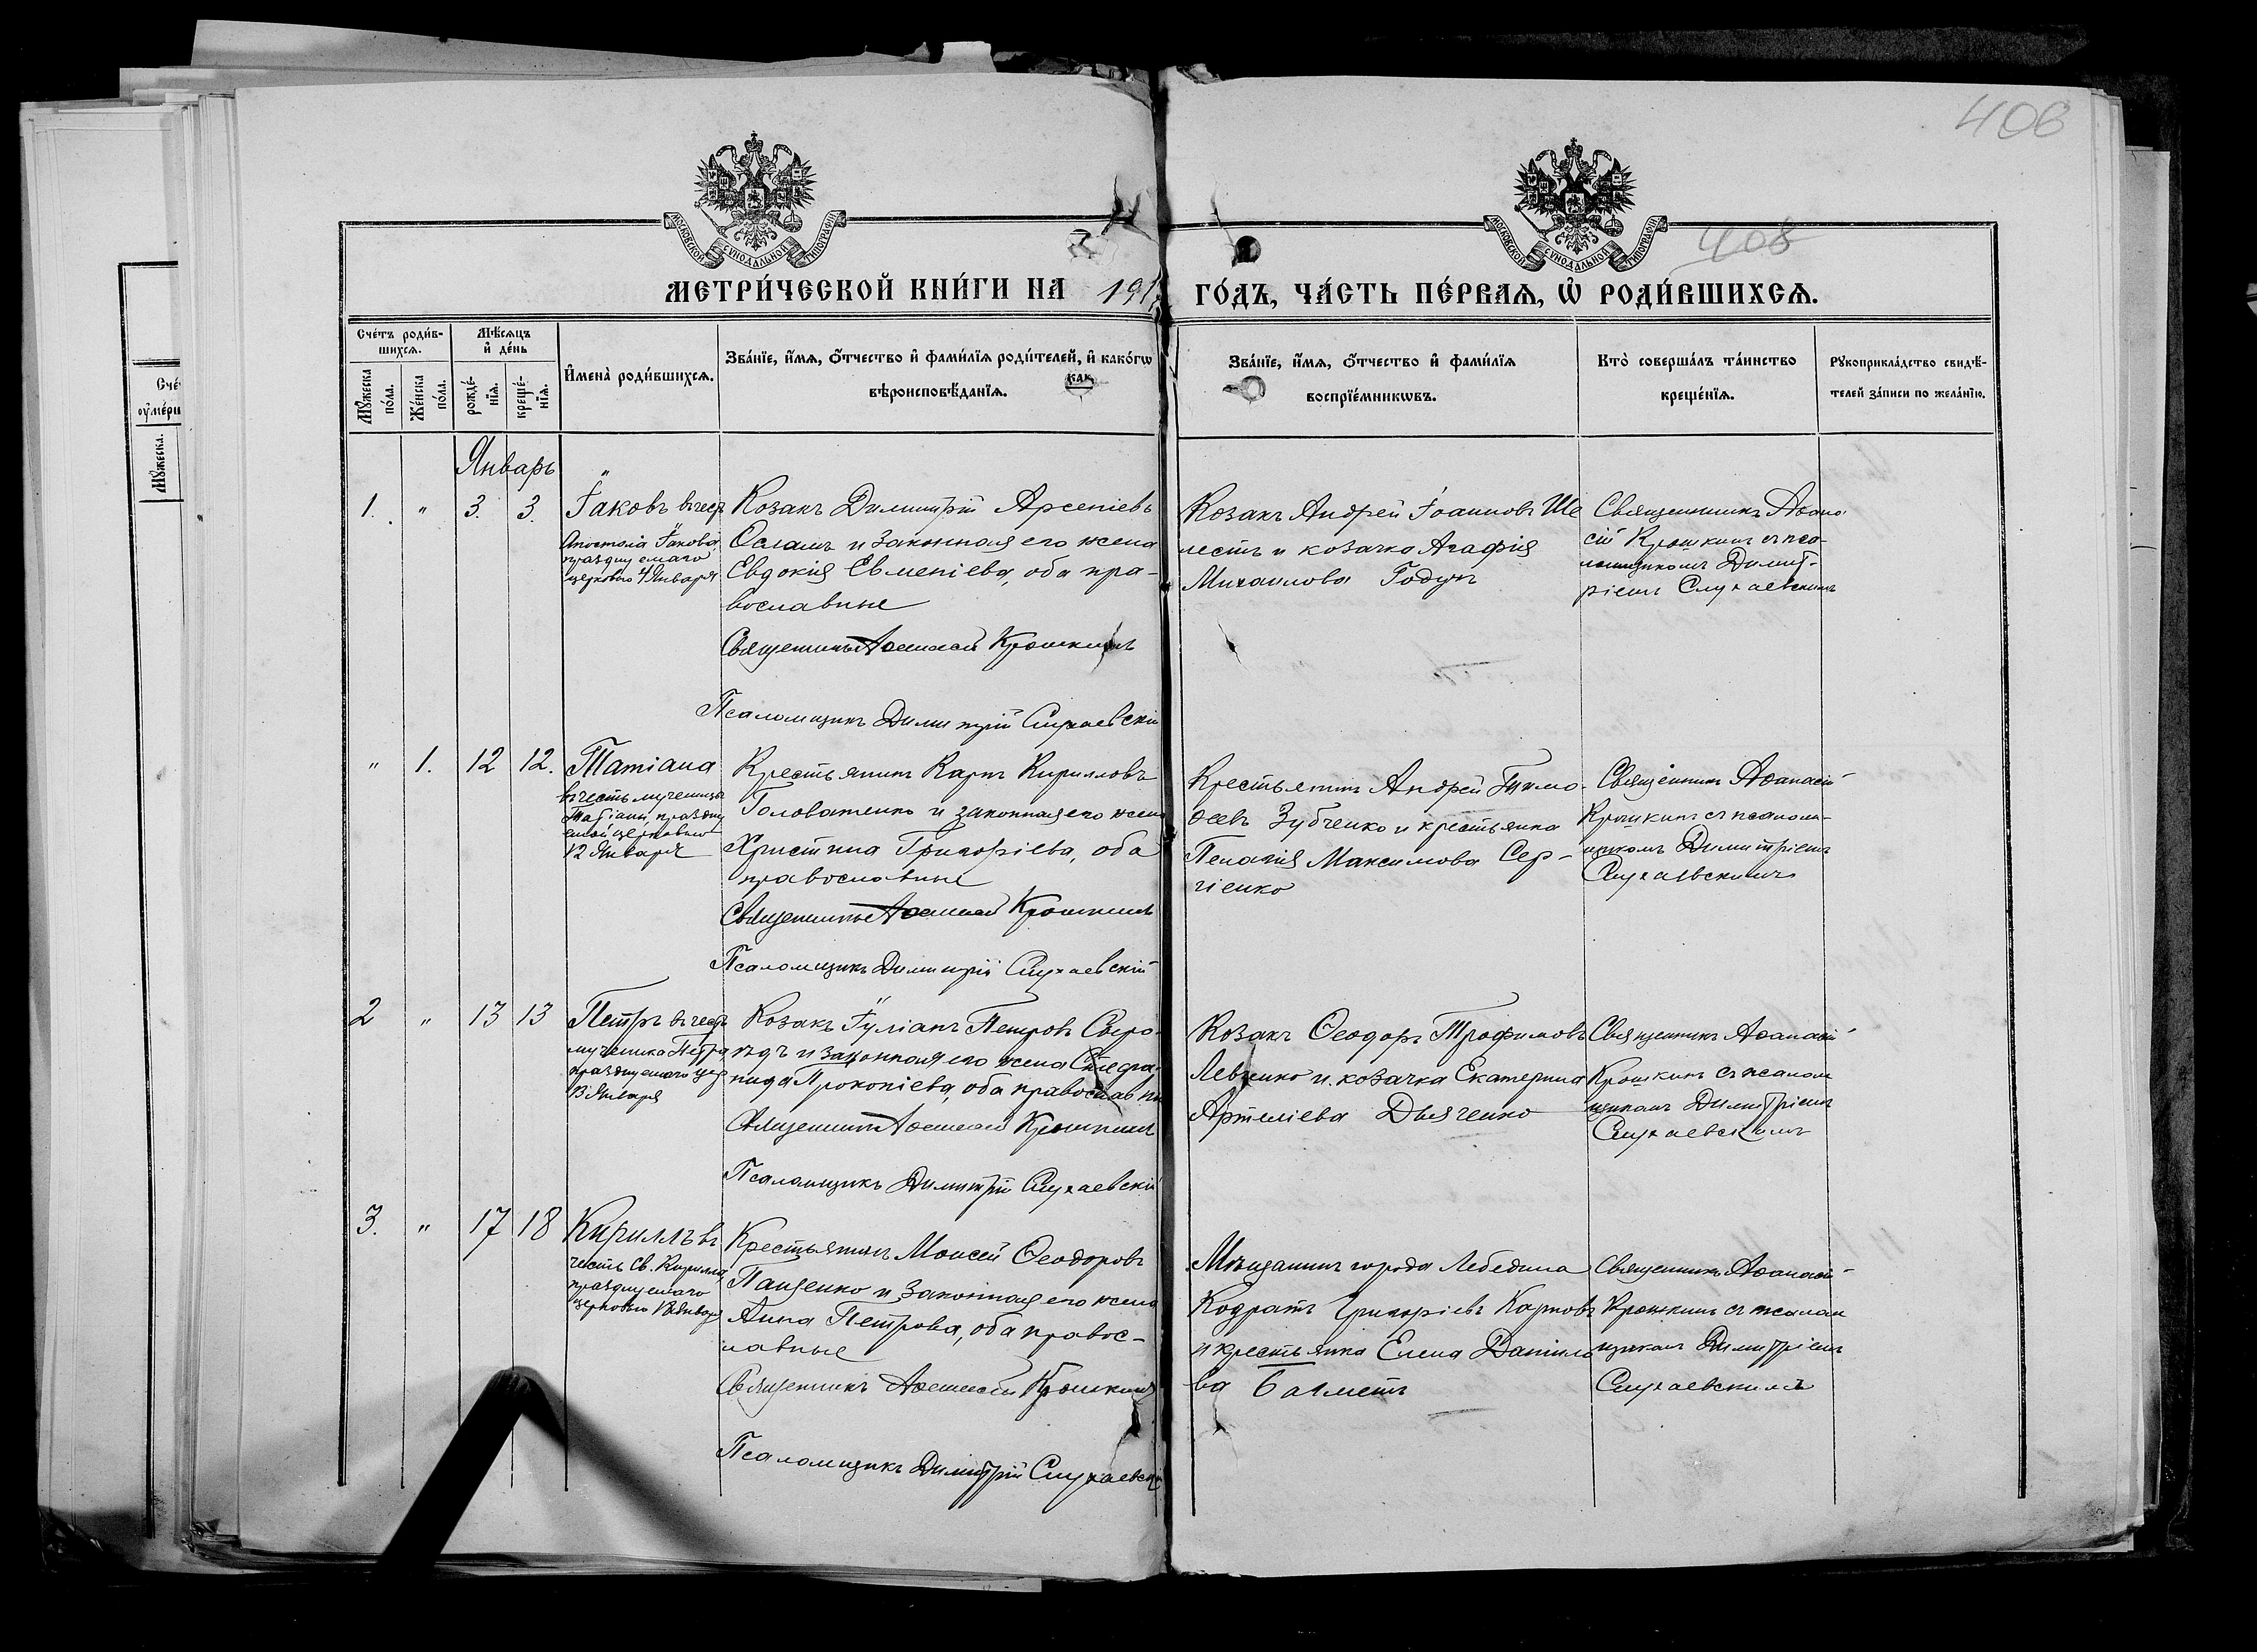 408
408
МОСКОВСКОЙ СѴНОДАЛЬНОЙ ТИПОГРАФІИ
МОСКОВСКОЙ СѴНОДАЛЬНОЙ ТИПОГРАФІИ
МЕТРИ́ЧЕСКОЙ КНИ́ГИ НА 191
ГО́ДЪ, ЧА́СТЬ ПЕ́РВАѦ, Ѽ РОДИ́ВШИХСѦ.
Сче́тъ роди́в-
шихсѧ.
Мѣ́сѧцъ
и҆ де́нь
Мꙋ́жеска
по́ла.
Же́нска
по́ла.
рожде́-
нїѧ.
креще́-
нїѧ.
И҆мена̀ роди́вшихсѧ.
Зва́нїе, и҆́мѧ, ѻ҆́тчество и҆ фами́лїѧ роди́телей, и҆ како́гѡ
вѣроисповѣ́данїѧ.
Зва́нїе, и҆́мѧ, ѻ҆́тчество и҆ фами́лїѧ
воспрїе́мникѡвъ.
Кто̀ соверша́лъ та́инство
креще́нїѧ.
Рꙋкоприкла́дство свидѣ́-
телей за́писи по жела́нїю.
Январь
1. " 3. 3.
Іаковъ въ чест
Апостола Іакова,
празднуемаго
церковью 4 Января
Козакъ Димитрій Арсеніевъ
Осламъ и законная его жена
Евдокія Евменіева, оба пра-
вославные
Священникъ Аѳанасій Крошкинъ
Псаломщикъ Димитрій Слухаевскій
Козакъ Андрей Іоанновъ Ше
лестъ и козачка Агафія
Михаилова Годунъ
Священникъ Аѳана
сій Крошкинъ съ пса-
ломщикомъ Димит-
ріемъ Слухаевскимъ
" 1. 12 12.
Татіана
въ честь мученицы
Татіаны, праздну
емой церковью
12 Января
Крестьянинъ Карпъ Кирилловъ
Головатенко и законная его жена
Христина Григоріева, оба
православные
Священникъ Аѳанасій Крошкинъ
Псаломщикъ Димитрій Слухаевскій
Крестьянинъ Андрей Тимо-
ѳеевъ Зубченко и крестьянка
Пелагія Максимова Сер-
гіенко
Священникъ Аѳанасій
Крошкинъ съ псалом-
щикомъ Димитріемъ
Слухаевскимъ
2 " 13 13
Петръ въ честь
мученика Петра,
празднуемаго цер
13 Января
Козакъ Іуліанъ Петровъ Сыро-
ѣдъ и законная его жена Стефа-
нида Прокопіева, оба православны
Священникъ Аѳанасій Крошкинъ
Псаломщикъ Димитрій Слухаевскій
Козакъ Ѳеодоръ Трофимовъ
Левченко и козачка Екатерина
Артеміева Дьяченко
Священникъ Аѳанасій
Крошкинъ съ псалом
щикомъ Димитріемъ
Слухаевскимъ
3. " 17 18
Кириллъ въ
честь Св. Кирилла,
празднуемаго
церковью Января
Крестьянинъ Моисей Ѳеодоровъ
Пащенко и законная его жена
Анна Петрова, оба правос-
лавные
Священникъ Аѳанасій Крошкинъ
Псаломщикъ Димитрій Слухаевскі
Мѣщанинъ города Лебедина
Кодратъ Григоріевъ Карповъ
и крестьянка Елена Данило
ва
Священникъ Аѳанасій
Крошкинъ съ псалом
щикомъ Димитріемъ
Слухаевскимъ